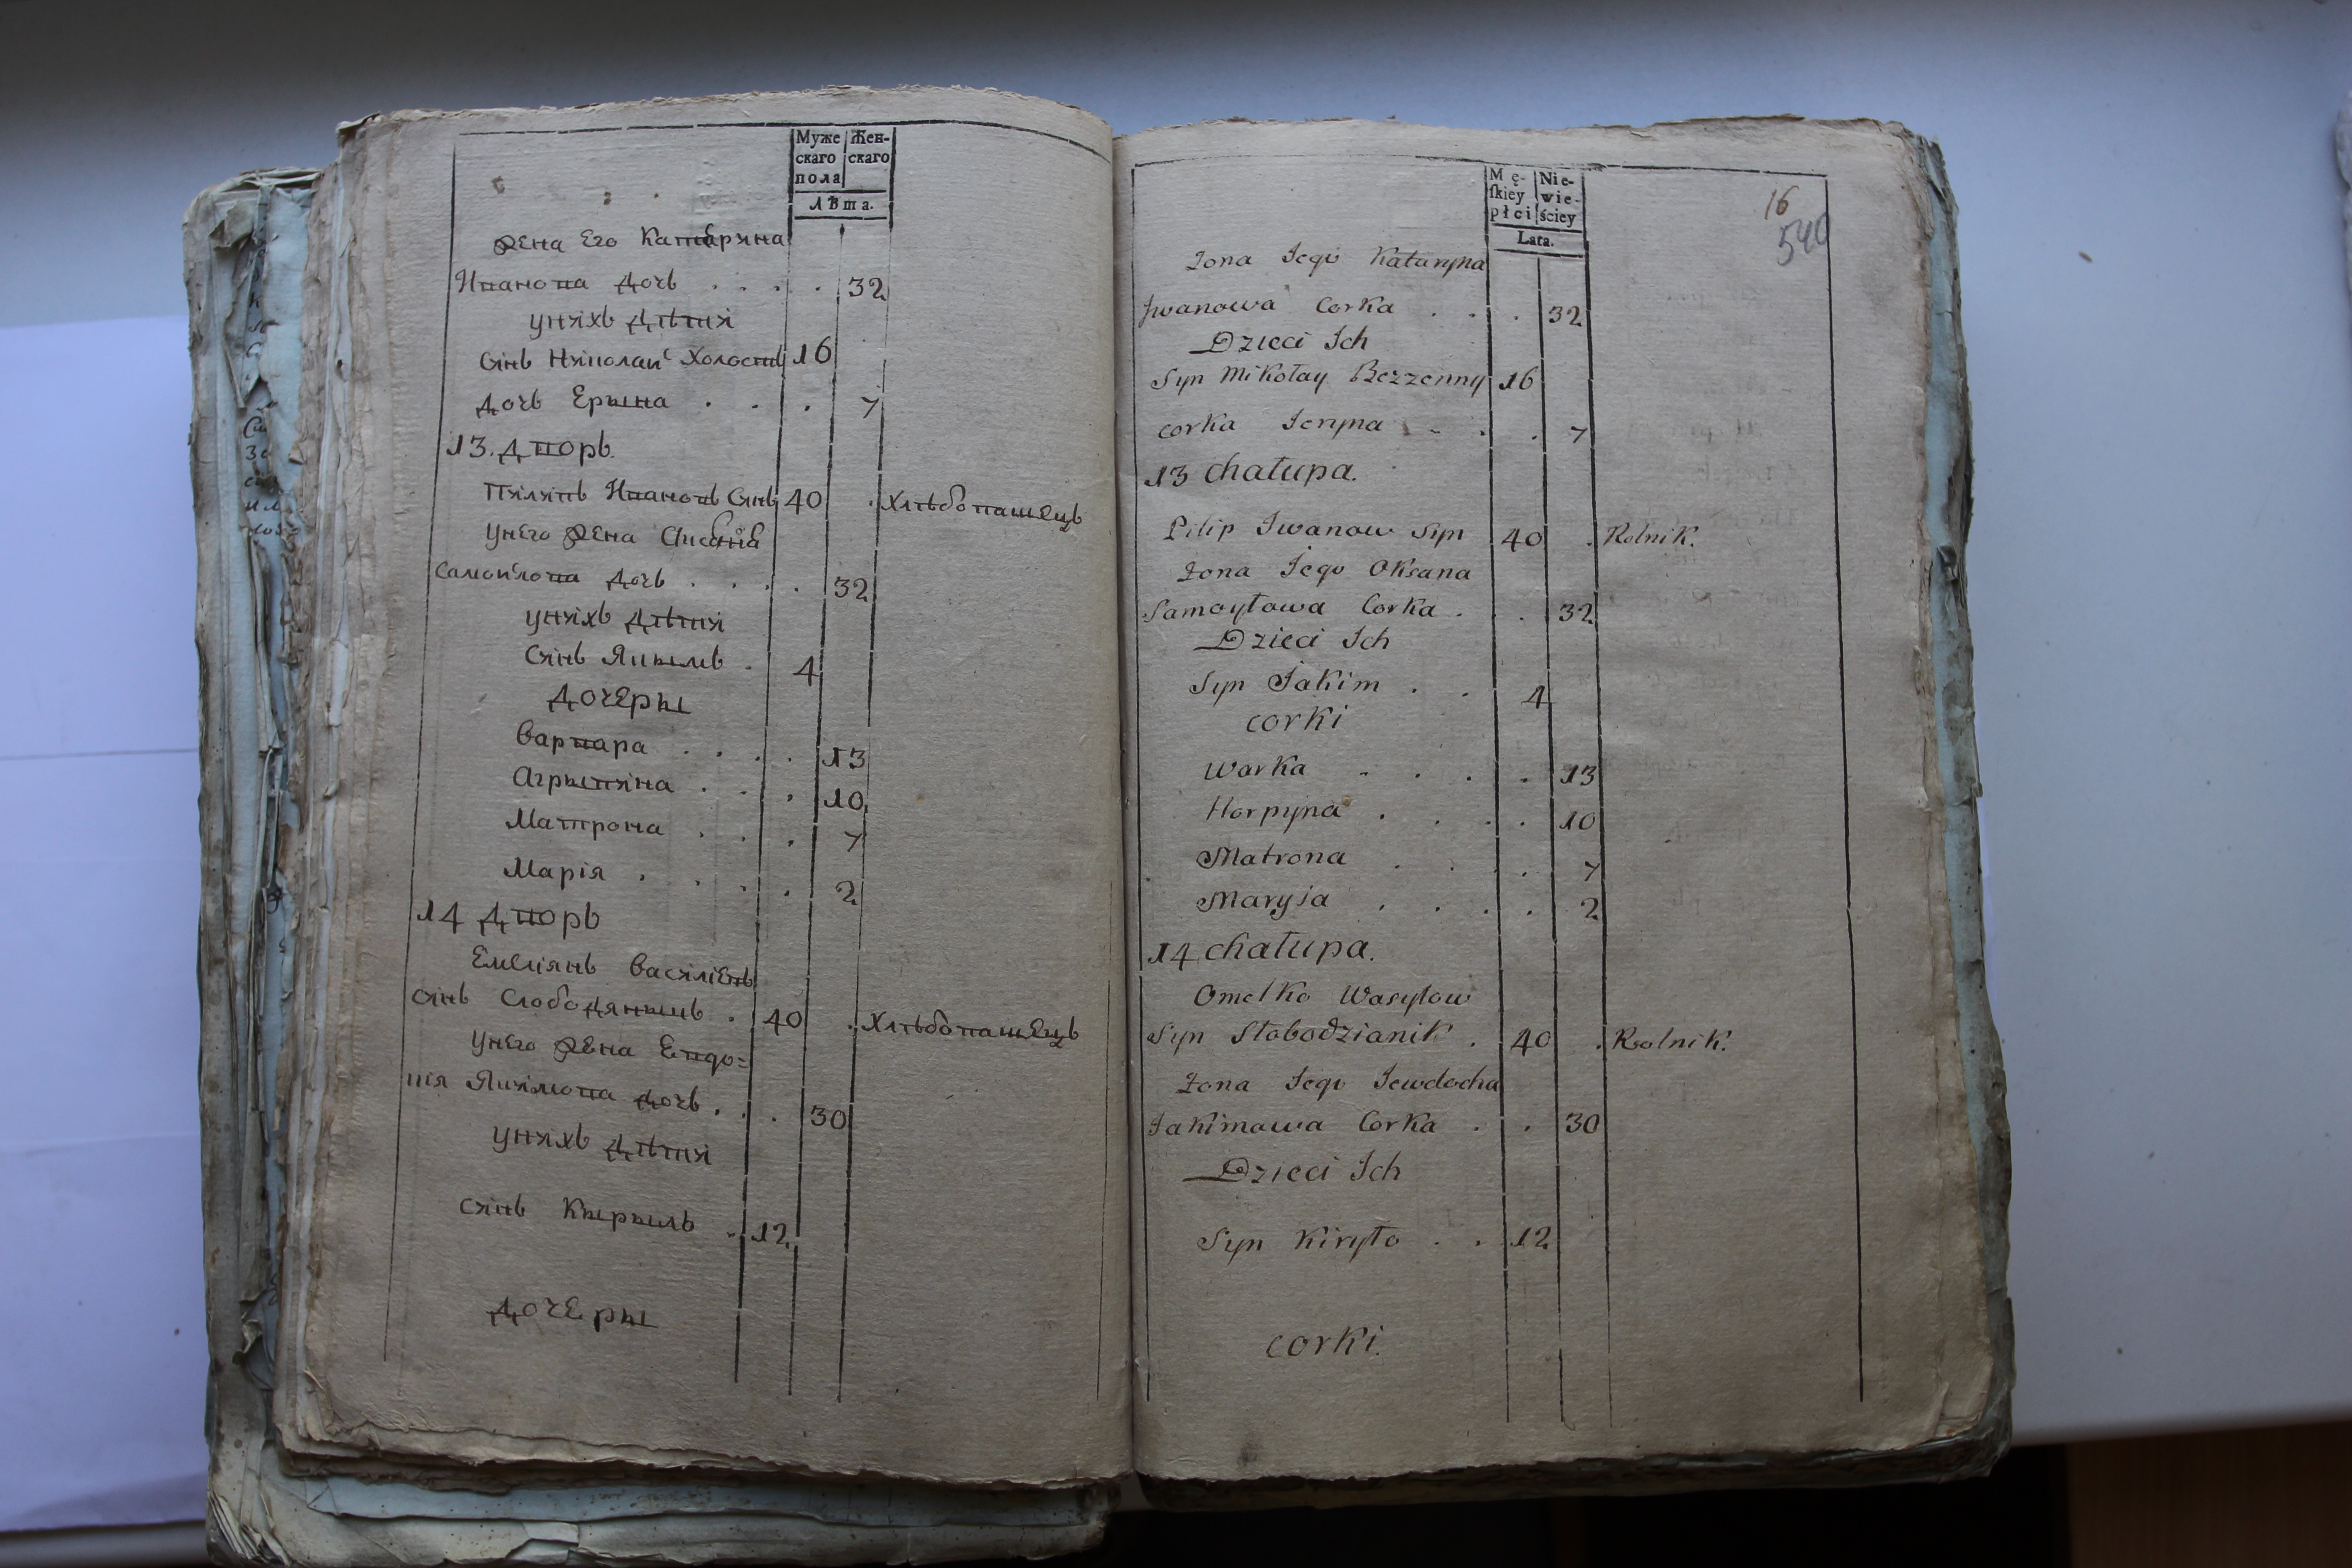 Муже
скаго
пола
Жен-
скаго
лѣта.
жена Его Катерина
Иванова дочь . . . . 32
унихъ дѣти
синъ Николай Холостъ 16
дочь Ерына . . . 7
13. дворъ.
Пилипъ Ивановъ синъ 40 . хлѣбопашецъ
унего жена
Самойлова дочь . . . . 32
унихъ дѣти
синъ Якымъ . 4
дочеры
Варвара . . . . 13
Агрыпина . . . 10
Матрона . . . 7
Марія . . . . 2
14 дворъ
Емеліянъ Василіевъ
синъ Слободяныкъ . 40 . хлѣбопашецъ
унего жена Евдо=
кія Якимова дочь . . . 30
унихъ дѣти
синъ Кырылъ . 12
дочеры
Mę-
ſkiey
płci
Nie-
wie-
ściey
Lata.
16
540
Żona Jego Kataryna
Jwanowa Corka . . . 32
Dzieci Jch
Syn Mikołay Bezzenny 16
corka Jeryna . . . 7
13 chałupa.
Pilip Jwanow Syn 40 . Rolnik.
Żona Jego Oksana
Samoyłowa Corka . . . 32
Dzieci Jch
Syn Jakim . . 4
corki
Warka . . . . 13
Horpyna . . . . 10
Matrona . . . 7
Maryja . . . . 2
14 chałupa.
Omelko Wasylow
Syn Słobodzianik . 40 . Rolnik.
Żona Jego Jewdocha
Jakimowa Corka . . 30
Dzieci Jch
Syn Kiryło . . 12
corki.